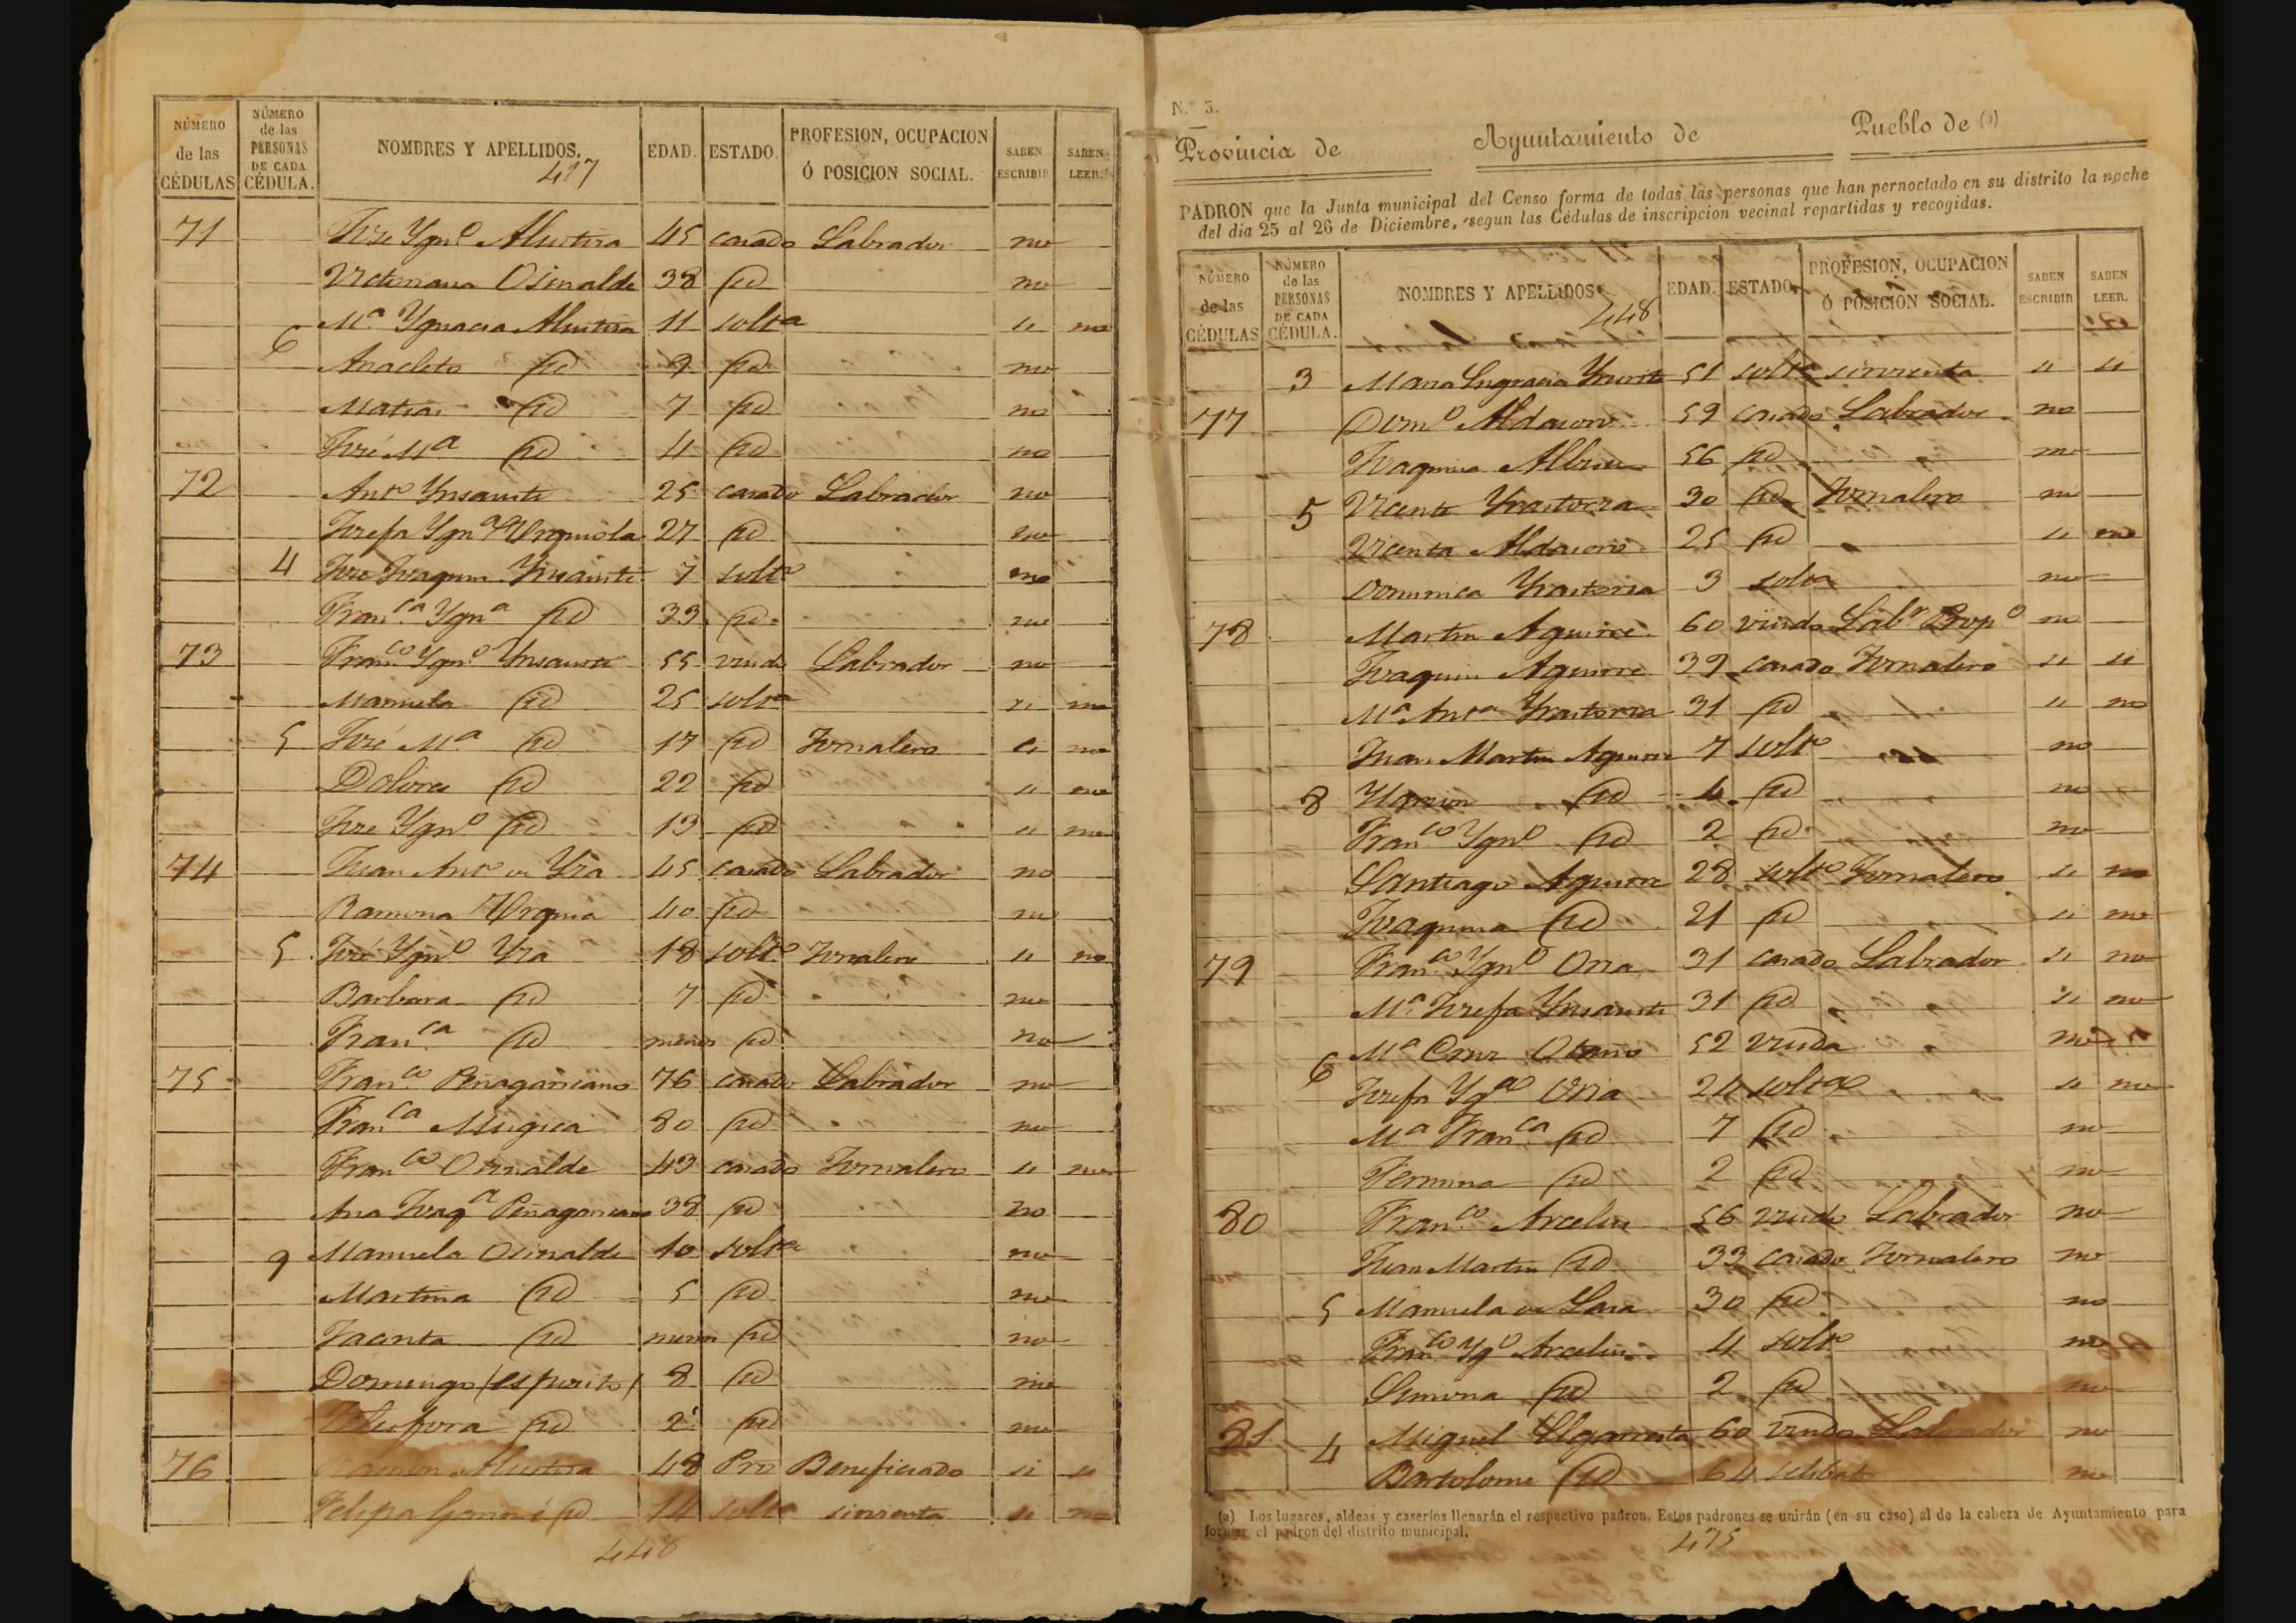 NÚMERO de las CÉDULAS NÚMERO de las PERSONAS DE CADA CÉDULA. NOMBRES Y APELLIDOS. EDAD. ESTADO. PROFESION, OCUPACION Ó POSICION SOCIAL. SABEN ESCRIBIR SABEN LEER.
417
71 José Ygn.º Alustiza 45 casado Labrador no
Victoriana Osinalde 38 id no
M.ª Ygnacia Alustiza 11 solt.a si no
6 Anacleto id 9 id no
Matias id 7 id no
José M.ª id 4 id no
72 Ant.º Ynsausti 25 casado Labrador no
Josefa Ygn.ª Urquiola 27 id no
4 José Joaquin Ynsausti 7 solt.º no
Fran.ca Ygn.a id 33 id no
73 Fran.co Ygn.º Ynsausti 55 viudo Labrador no
Manuela id 25 solt.a si no
5 José M.ª id 17 id Jornalero si no
Dolores id 22 id si no
José Ygn.º id 13 id si no
74 Juan Ant.º de Yza 45 casado Labrador no
Ramona Urquia 40 id no
5 José Ygn.º Yza 18 solt.º Jornalero si no
Barbara id 7 id no
Fran.ca id menor id no
75 Fran.co Peñagaricano 76 casado Labrador no
Fran.ca Mugica 80 id no
Fran.co Osinalde 43 casado Jornalero si no
Ana Joaq.a Peñagaricano 38 id no
9 Manuela Osinalde 10 solt.a no
Martina id 5 id no
Jacinta id menor id no
Domingo (esposito) 8 id no
id 2 id no
76 Ramon Alustiza 48 Pro Beneficiado si si
Felipa id 14 solt.a sirvienta si no
448
N.º 3.
Provincia de Ayuntamiento de Pueblo de (a)
PADRON que la Junta municipal del Censo forma de todas las personas que han pernoctado en su distrito la noche
del dia 25 al 26 de Diciembre, segun las Cédulas de inscripcion vecinal repartidas y recogidas.
NÚMERO de las CÉDULAS NÚMERO de las PERSONAS DE CADA CÉDULA. NOMBRES Y APELLIDOS EDAD. ESTADO. PROFESION, OCUPACION Ó POSICION SOCIAL. SABEN ESCRIBIR SABEN LEER.
448
3 Maria Engracia 51 solt.a sirvienta si si
77 Dom.º Aldasoro 59 casado Labrador no
Joaquina Albisu 56 id no
5 Vicente Yrastorza 30 id Jornalero no
Vicenta Aldasoro 25 id si no
Dominica Yrastorza 3 solt.a no
78 Martin Aguirre 60 viudo Lab.r Prop.º no
Joaquin Aguirre 39 casado Jornalero si si
M.ª Ant.a Yrastorza 31 id si no
Juan Martin Aguirre 7 solt.º no
8 id 4 id no
Fran.co Ygn.º id 2 id no
Santiago Aguirre 28 solt.º Jornalero si no
Joaquina id 21 id si no
79 Fran.co Ygn.º Oria 31 casado Labrador si no
M.ª Josefa Ynsausti 31 id si no
6 M.ª Cruz Otaño 52 viuda no
Josefa Yg.a Oria 24 solt.a si no
M.ª Fran.ca id 7 id no
Fermina id 2 id no
80 Fran.co Arcelus 56 viudo Labrador no
Juan Martin id 33 casado Jornalero no
5 Manuela de Lasa 30 id no
Fran.co Yg.º Arcelus 4 solt.º no
Simona id 2 id no
81 4 Miguel Ugarresta 60 viudo Labrador no
Bartolome id 64 no
(a) Los lugares, aldeas y caseríos llenarán el respectivo padron. Estos padrones se unirán (en su caso) al de la cabeza de Ayuntamiento para
formar el padron del distrito municipal.
475